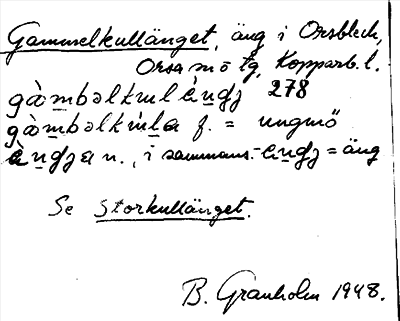 Gammelkullänget, äng i Orsbleck,
Orsa mo tg, Kopparb. l.
gàmbəlkulèngə 278
f. = ungmö
n., i sammans. = äng
Se Storkullänget.
B. Granholm 1948.